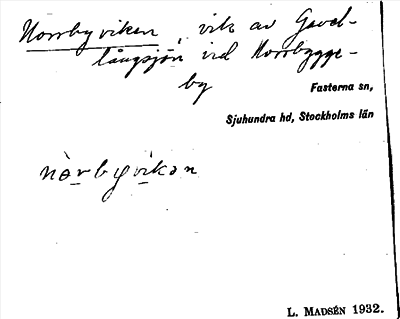 Norrbyviken, vik av Gavel-
långsjön vid Norrbygge-
by
Fasterna sn,
Sjuhundra hd, Stockholms län
nòrbyvikən
L. MADSÉN 1932.